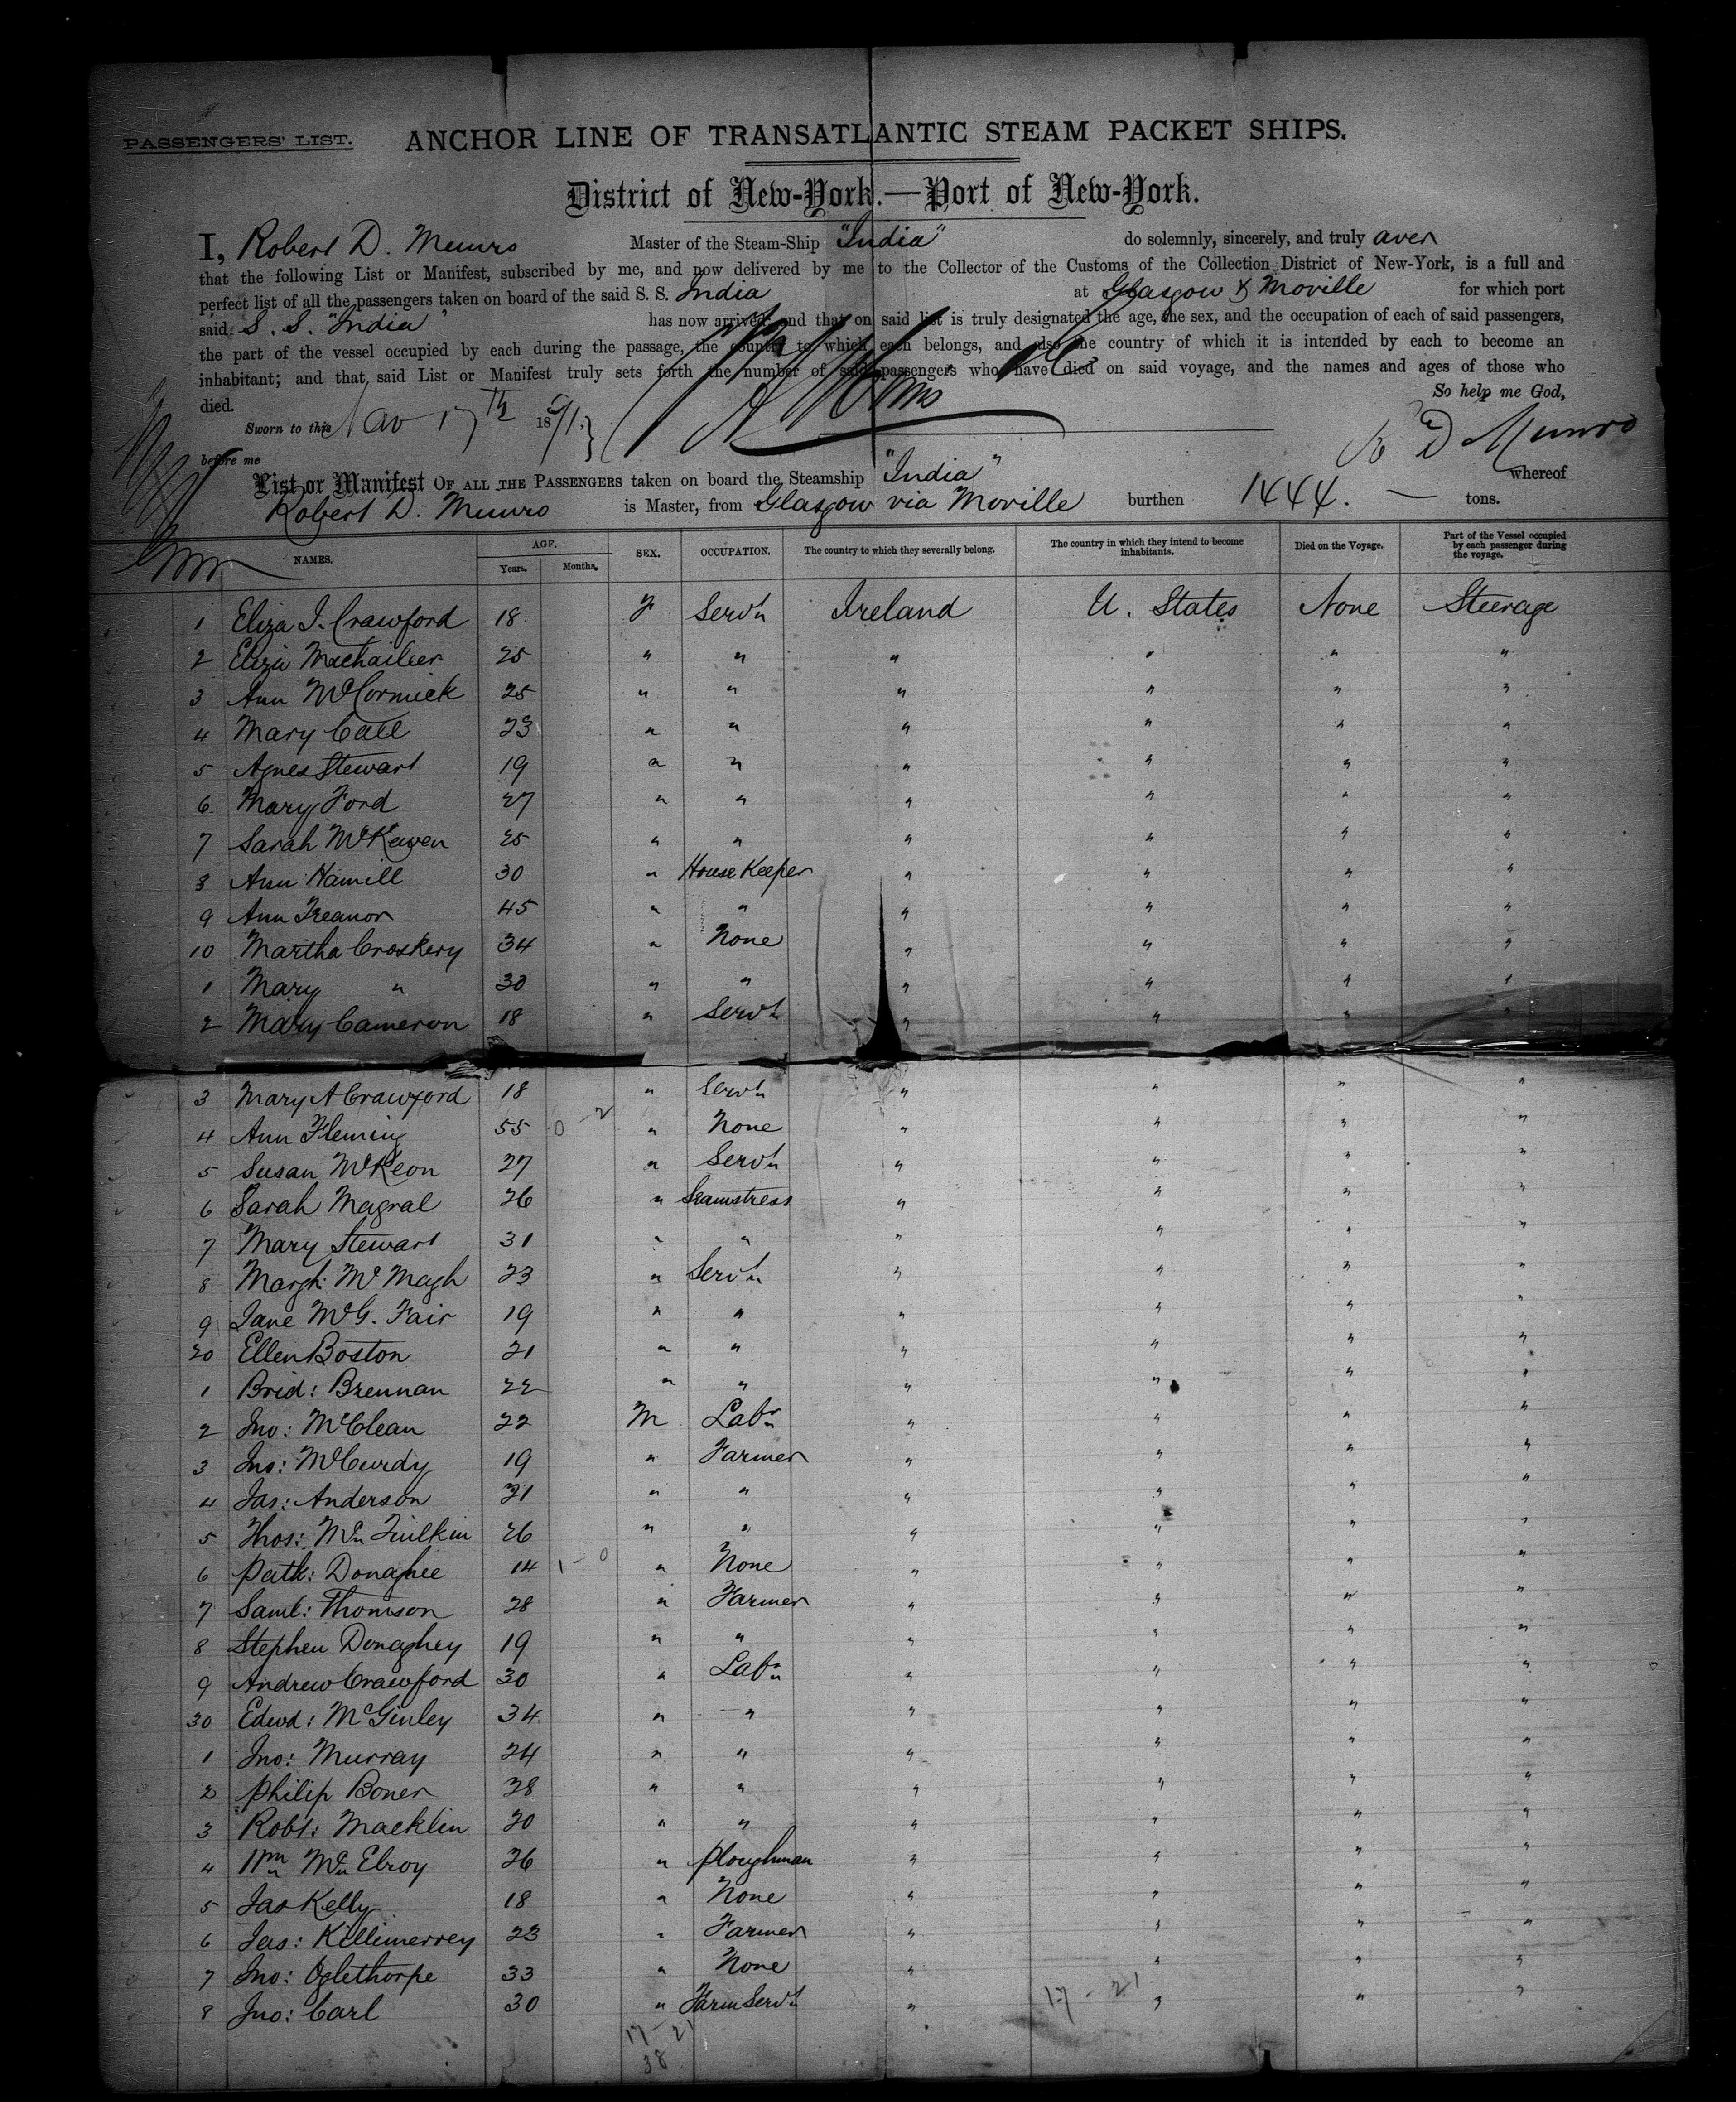 PASSENGERS' LIST. ANCHOR LINE OF TRANSATLANTIC STEAM PACKET SHIPS.
District of New-York.—Port of New-York.
I, Robert D. Munro Master of the Steam-Ship "India" do solemnly, sincerely, and truly aver
that the following List or Manifest, subscribed by me, and now delivered by me to the Collector of the Customs of the Collection District of New-York, is a full and
perfect list of all the passengers taken on board of the said S. S. India at Glasgow & Moville for which port
said S. S. "India" has now arrived; and that on said list is truly designated the age, the sex, and the occupation of each of said passengers,
the part of the vessel occupied by each during the passage, the country to which each belongs, and also the country of which it is intended by each to become an
inhabitant; and that said List or Manifest truly sets forth the number of said passengers who have died on said voyage, and the names and ages of those who
died. So help me God,
Sworn to this Nov 17th 1871
before me R D Munro
List or Manifest OF ALL THE PASSENGERS taken on board the Steamship "India" whereof
Robert D. Munro is Master, from Glasgow via Moville burthen 1444. — tons.
NAMES. AGE. Years. Months. SEX. OCCUPATION. The country to which they severally belong. The country in which they intend to become inhabitants. Died on the Voyage. Part of the Vessel occupied by each passenger during the voyage.
1 Eliza J. Crawford 18 F Servt Ireland U. States None Steerage
2 Eliza 25 " " " " " "
3 Ann McCormick 25 " " " " " "
4 Mary Call 23 " " " " " "
5 Agnes Stewart 19 " " " " " "
6 Mary Ford 27 " " " " " "
7 Sarah McKewen 25 " " " " " "
8 Ann Hamill 30 " House Keeper " " " "
9 Ann Treanor 45 " " " " " "
10 Martha Croskery 34 " None " " " "
1 Mary " 30 " " " " " "
2 Mary Cameron 18 " Servt " " " "
3 Mary A Crawford 18 " Servt " " " "
4 Ann Fleming 55 0 - 2 " None " " " "
5 Susan McKeon 27 " Servt " " " "
6 Sarah Magral 26 " Seamstress " " " "
7 Mary Stewart 31 " " " " " "
8 Margt: Mc Magh 23 " Servt " " " "
9 Jane McG. Fair 19 " " " " " "
20 Ellen Boston 21 " " " " " "
1 Brid: Brennan 22 " " " " " "
2 Jno: McClean 22 M Labr " " " "
3 Jno: McCurdy 19 " Farmer " " " "
4 Jas: Anderson 21 " " " " " "
5 Thos: Mc Quilkin 26 " " " " " "
6 Patk: Donaghee 14 1 - 0 " None " " " "
7 Saml: Thomson 28 " Farmer " " " "
8 Stephen Donaghey 19 " " " " " "
9 Andrew Crawford 30 " Labr " " " "
30 Edwd: McGinley 34 " " " " " "
1 Jno: Murray 24 " " " " " "
2 Philip Boner 28 " " " " " "
3 Robt: Macklin 20 " " " " " "
4 Wm Mc Elroy 26 " Ploughman " " " "
5 Jas Kelly 18 " None " " " "
6 Jas: Killimerrey 23 " Farmer " " " "
7 Jno: Oglethorpe 33 " None " " " "
8 Jno: Carl 30 " Farm Servt " " " "
17 - 21
17 - 21
38